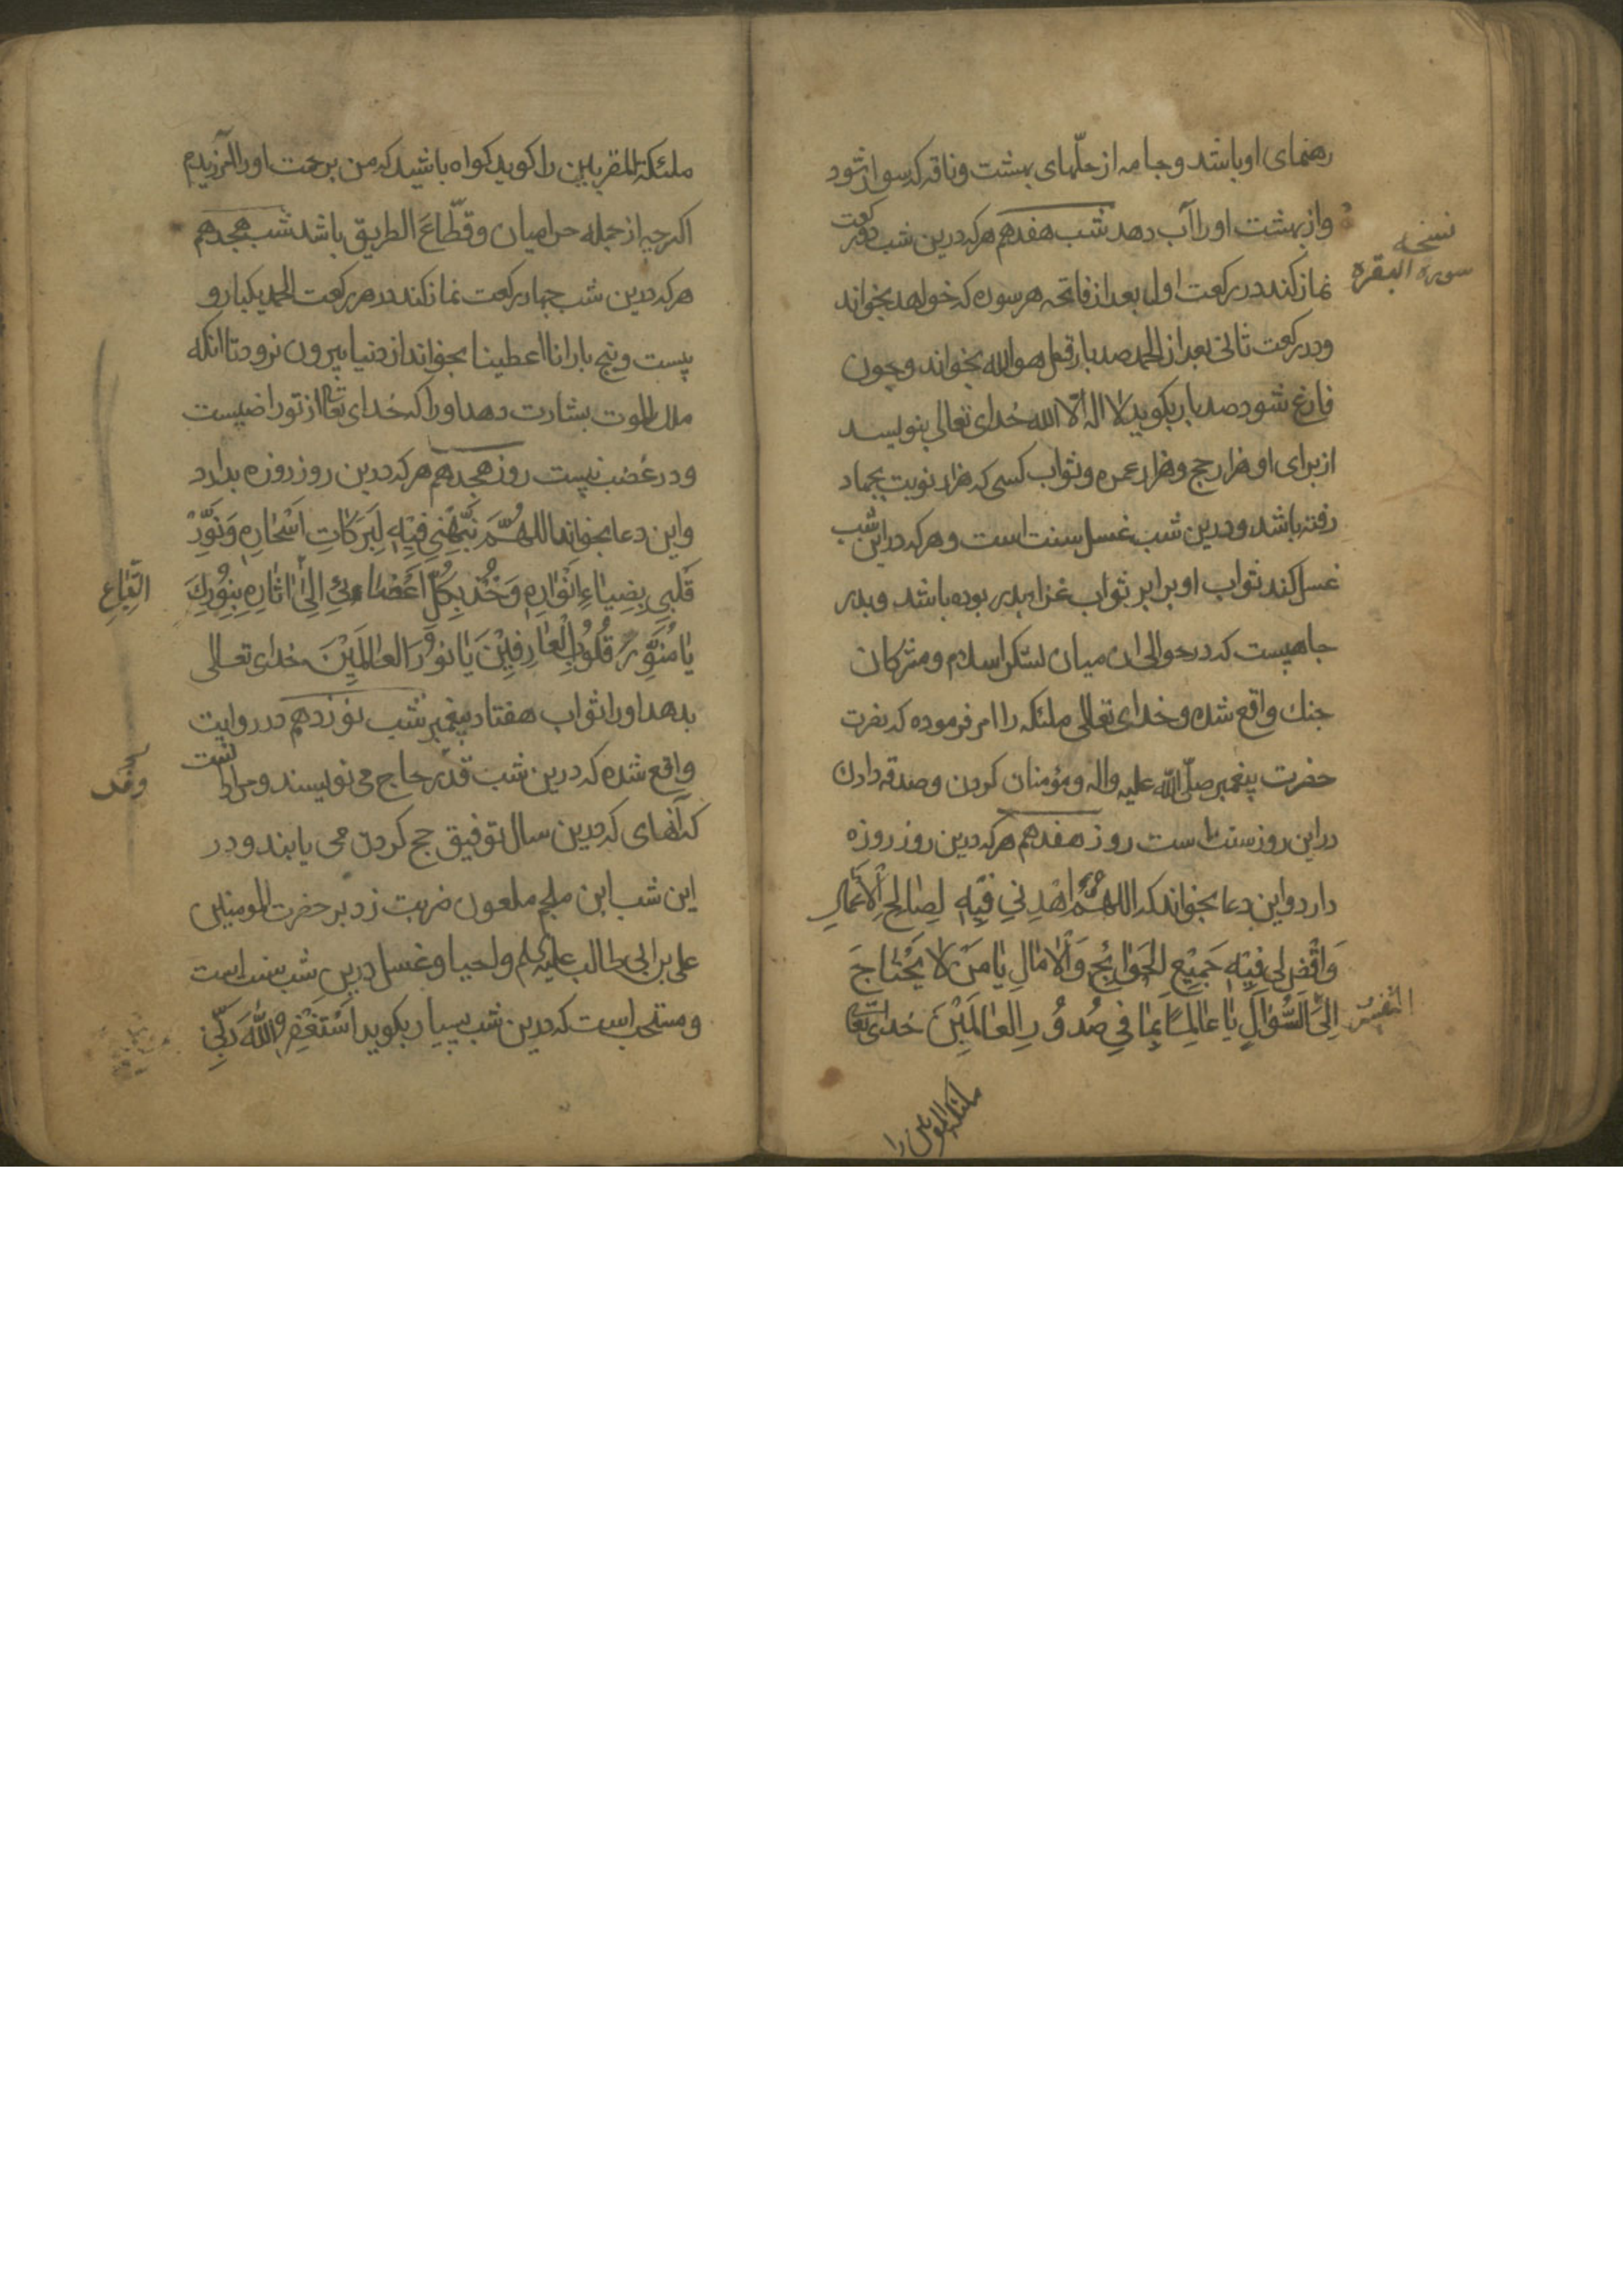 رهنمای او باشد و جامه از حلّهای بهشت و ناقه که سوار شود
و از بهشت او را آب دهد شب هفدهم هرکه درین شب دو رکعت
نماز کند در رکعت اول بعد از فاتحه هر سوره که خواهد بخواند
و در رکعت ثانی بعد از الحمد صد بار قل هو الله بخواند و چون
فارغ شود صد بار بکوید لا اله الّا الله خُدای تعالی بنویسد
از برای او هزار حج و هزار عمره و ثواب کسی که هزار نوبت بجهاد
رفته باشد و درین شب غسل سنت است و هرکه در این شب
غسل کند ثواب او برابر ثواب غزا ببدر بوده باشد و بدر
جاهیست که در حوالی ان میان لشکر اسلام و مشرکان
جنك واقع شده و خدای تعالی ملئکه را امر فرموده که نصرت
حضرت پیغمبر صلّی الله علیه واله و مؤمنان کردن و صدقه دادن
در این روز سنت است روز هفدهم هرکه درین روز روزه
دارد و این دعا بخواند که اللهُمَّ اهْدِنِي فِيْهِ لِصَالِحِ الْاَعْمَالِ
وَاقْضِ لِي فِيْهِ جَمِيْعِ الحَوَائِجِ وَالْاٰمَالِ يَا مَنْ لَا يَحْتَاجُ
اِلَى السُّؤَالِ يَا عَالِمًا بِمَا فِي صُدُوْرِ العَالَمِيْنَ خدای تعالی
نسخه
سوره البقره
ملئکة المقربین را کوید کواه باشید که من برحمت او را امرزیدم
اکرچه از جمله حرامیان و قطّاع الطریق باشد شب هجدهم
هرکه درین شب چهار رکعت نماز کند در هر رکعت الحمد یکبار و
بیست و پنج بار انا اعطینا بخواند از دنیا بیرون نرود تا انکه
ملك الموت بشارت دهد او را که خُدای تعالی از تو راضیست
و در غضب نیست روز هجدهم هرکه درین روز روزه بدارد
و این دعا بخواند اللهُمَّ نَبِّهْنِي فِيْهِ لِبَرَكَاتِ اَسْحَارِهِ وَنَوِّرْ
قَلْبِي بِضِيَاءِ اَنْوَارِهِ وَخُذْ بِكُلِّ اَعْضَائِي اِلَى اٰثَارِهِ بِنُوْرِكَ
يَا مُنَوِّرَ قُلُوْبِ الْعَارِفِيْنَ يَا نُوْرَ العَالَمِيْنَ خدای تعالی
بدهد او را ثواب هفتاد پیغمبر شب نوزدهم در روایت
واقع شده که درین شب قدر حاج می نویسند
که آنهای که درین سال توفیق حج کردن می یابند و در
این شب ابن ملجم ملعون ضربت زد بر حضرت امیر المومنین
علی بن ابی طالب علیه السلم و احیا و غسل درین شب سنت است
و مستحب است که درین شب بسیار بکوید اَسْتَغْفِرُ اللهَ رَبِّي